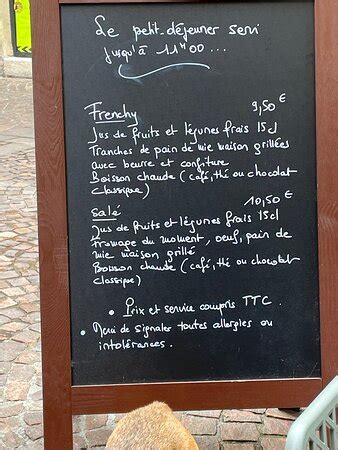 Le petit-déjeuner servi
jusqu'à 11H00...
Frenchy 9,50 €
Jus de fruits et légunes frais 15cl
Tranches de pain de mie maison grillées
avec beurre et confiture
Boisson chaude (café, thé ou chocolat
classique)
Salé 10,50 €
Jus de fruits et légunes frais 15cl
Fromage du moment, oeuf, pain de
mie maison grillé
Boisson chaude (café, thé ou chocolat
classique)
• Prix et service compris TTC.
• Merci de signaler toutes allergies ou
intolérances.